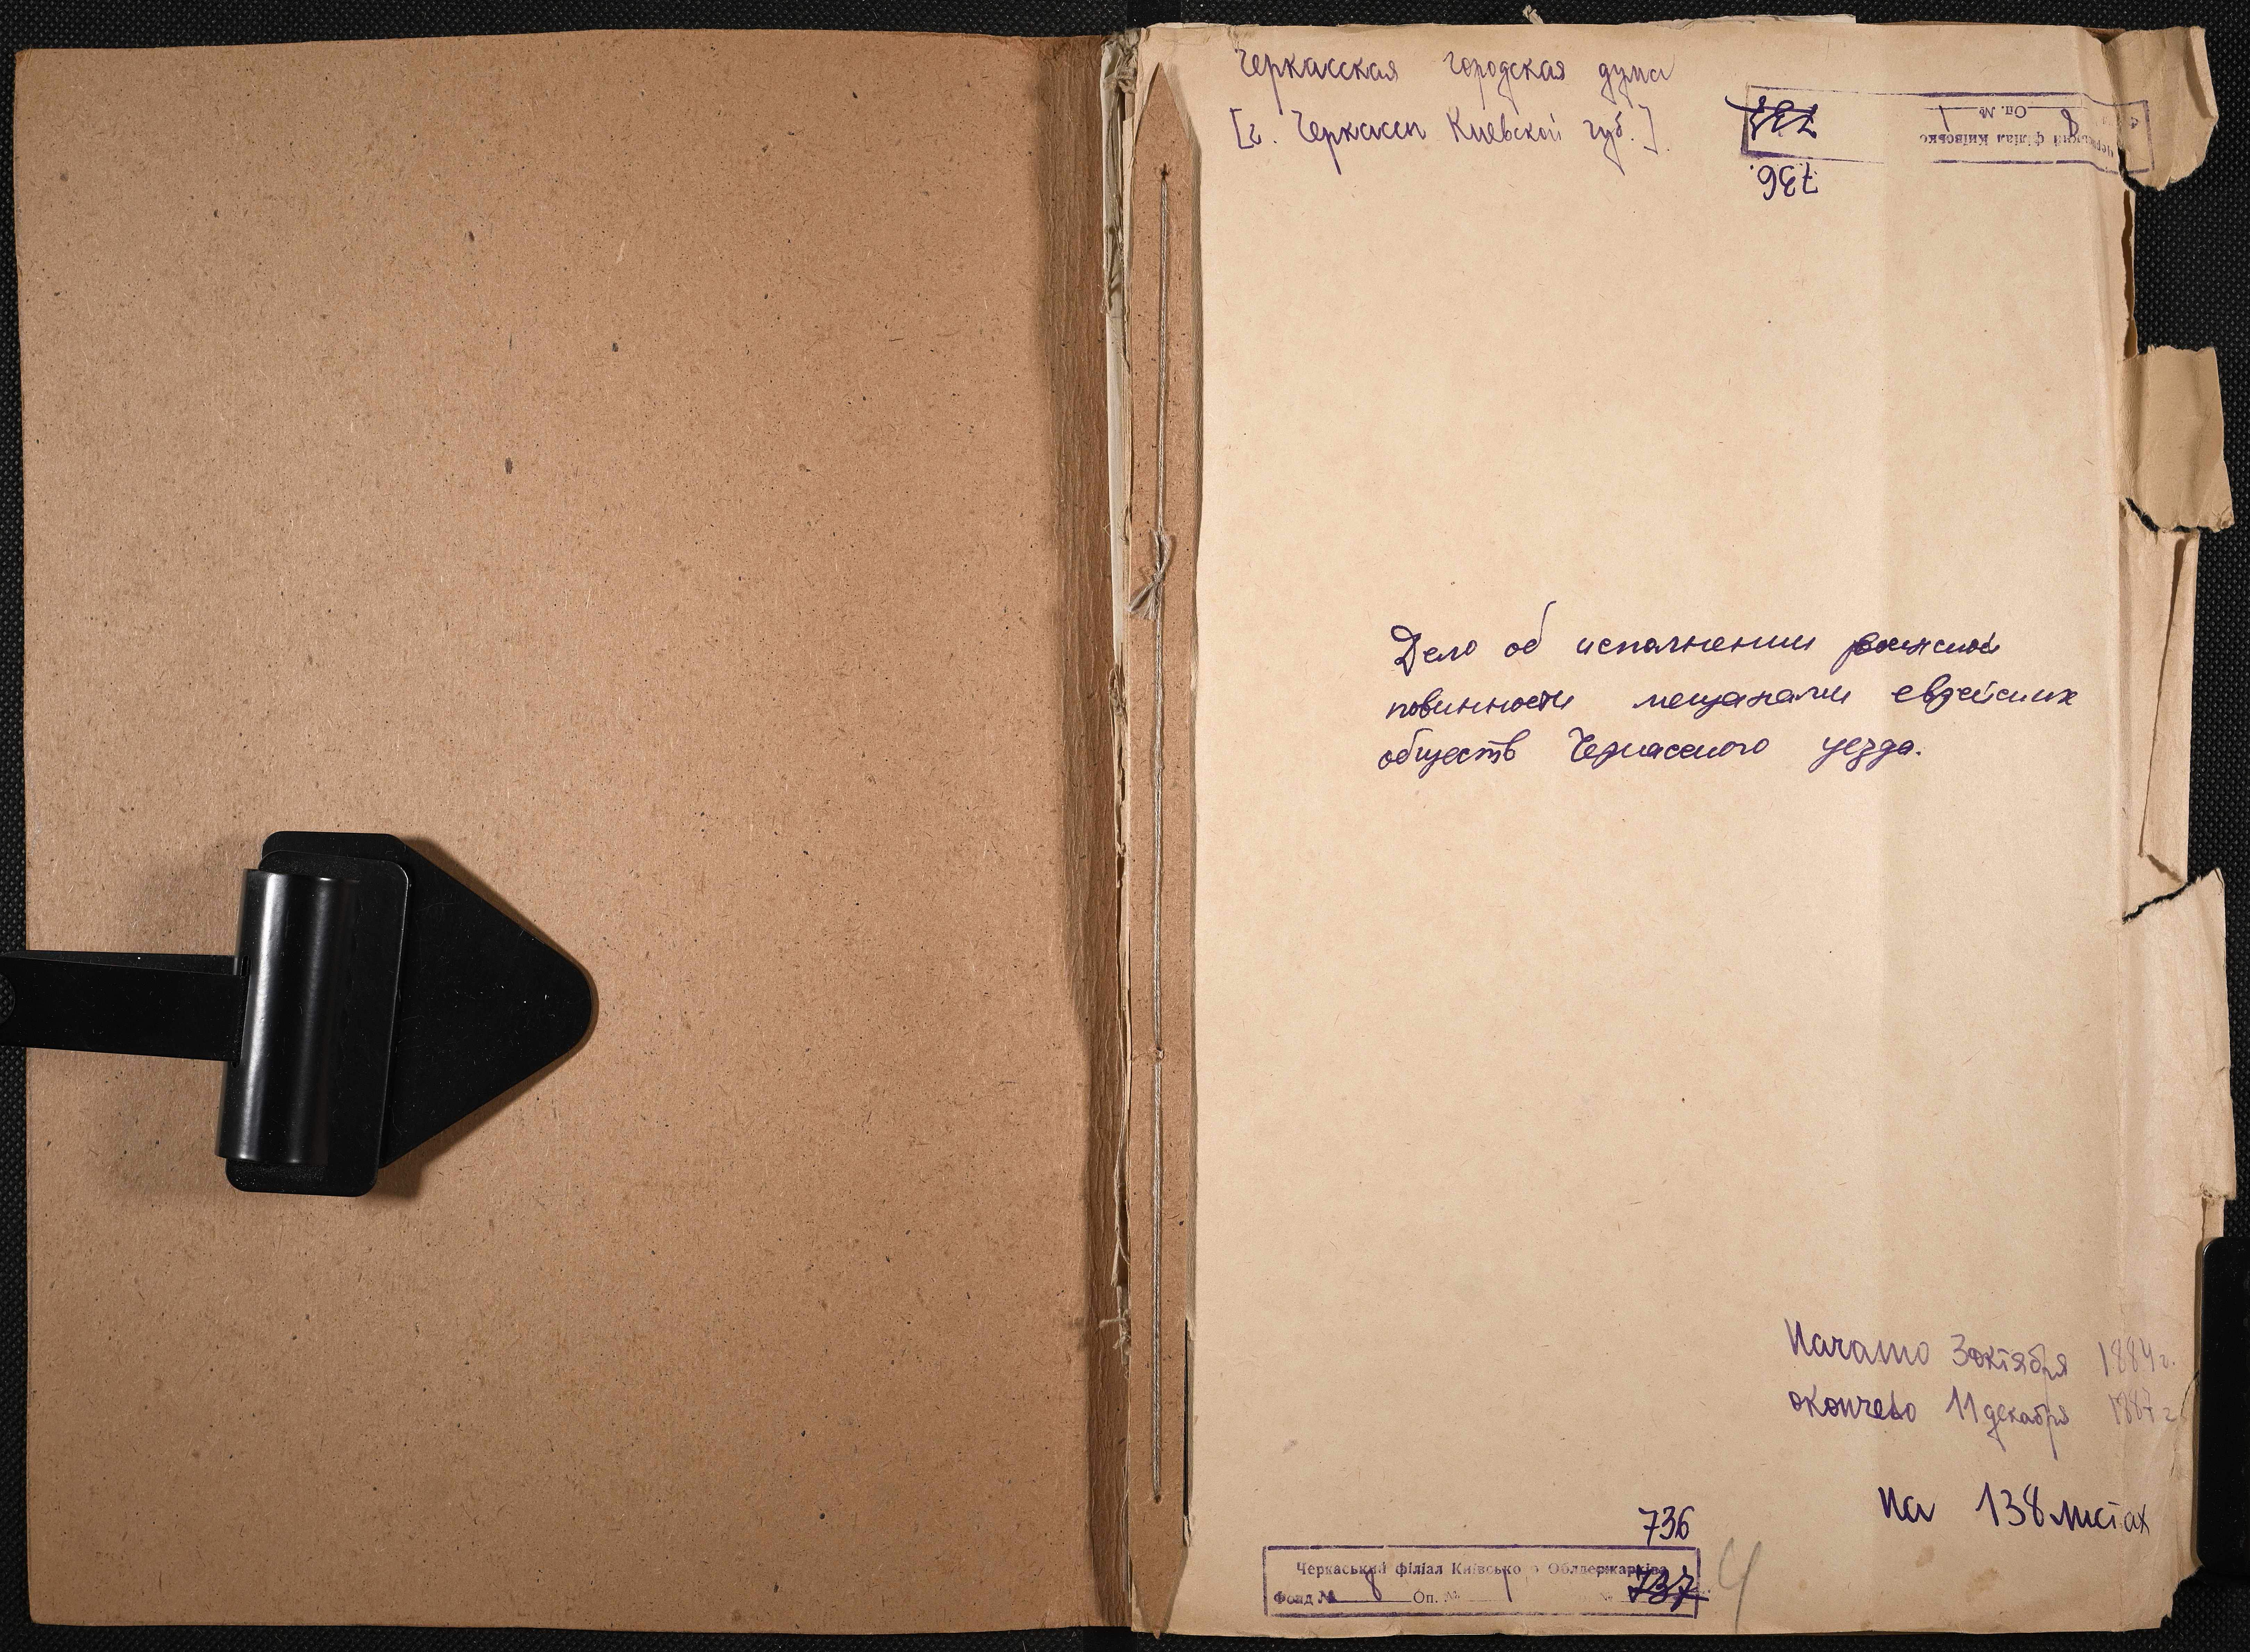 Черкасская городская дума
[г. Черкассы Киевской губ.]
Черкаський філіал Київсько
8 Оп. № 1
737
736.
Дело об исполнении воинской
повинности мещанами еврейских
обществ Черкасского уезда.
Начато 3 октября 1884 г.
окончено 11 декабря 1887 г.
На 138 листах
736
Черкаський філіал Київсько о Облдержархіва
Фонд № 8 Оп. № 1 № 737
4